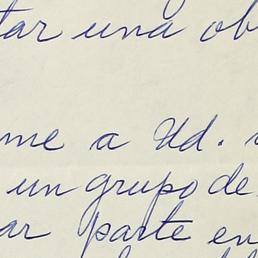 tar una ob
me a Ud.
un grupo de
ar parte en